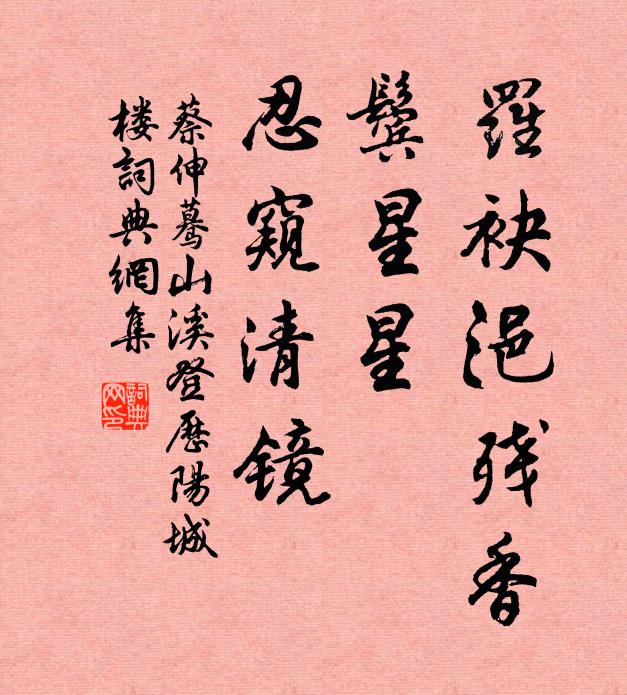 羅袂浥残香
鬢星星
忍窺清鏡
蔡伸驀山溪登歷陽城
楼詞典網集
詞典
网印